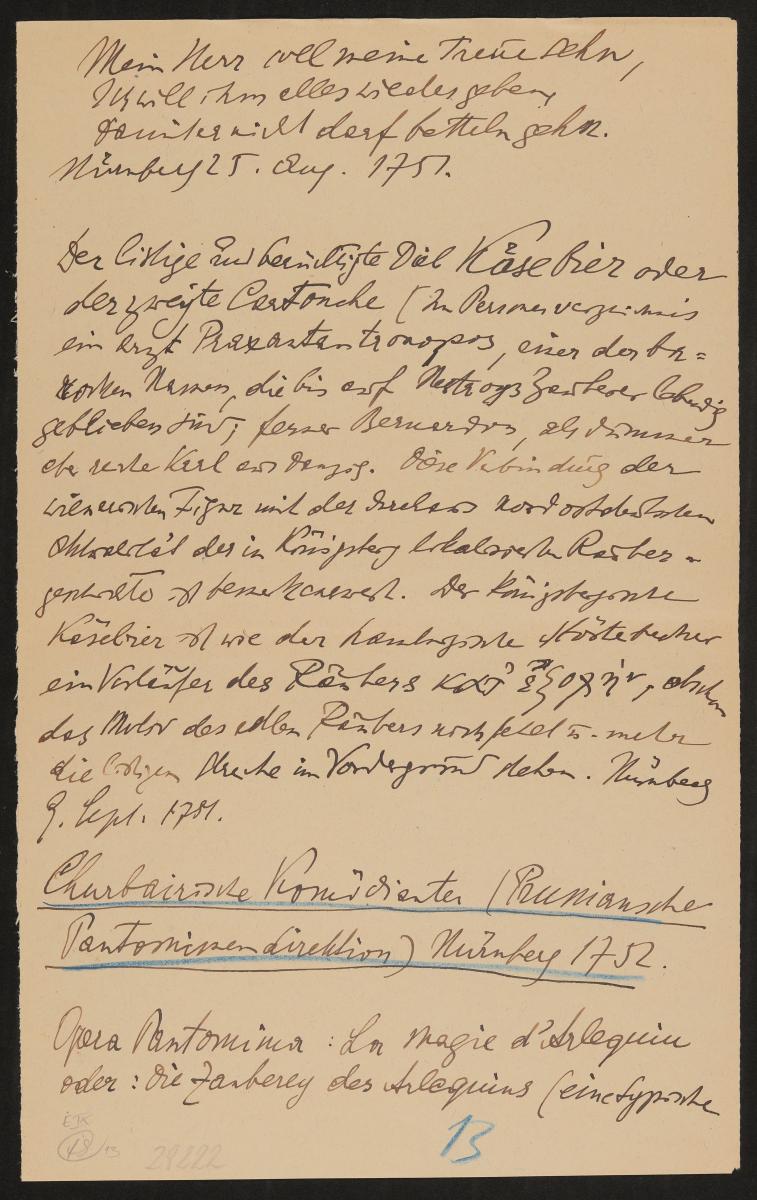 Mein Herr soll meine Treue sehn,
Ich will ihm alles wieder geben,
Damit er nicht darf betteln gehn.
Nürnberg 25. Aug. 1751.
Der listige und berüchtigte Dieb Käsebier oder
der zweyte Cartouche (Im Personenverzeichnis
ein Arzt, einer der ba=
rocken Namen, die bis auf Nestroys Zauberer lebendig
geblieben sind; ferner Bernardon, als dummer
aber Karl aus Danzig. Diese Verbindung der
wienerischen Figur mit der durchaus nordostdeutschen
der in Königsberg lokalisierten Räuber=
geschichte ist bemerkenswert. Der Königsbergische
Käsebier ist wie der hamburgische Störtebecker
ein Vorläufer des Räubers κατ' ἐξοχήν, obschon
das Motiv des edlen Räubers noch fehlt u. mehr
die listigen Streiche im Vordergrund stehen. Nürnberg
9. Sept. 1751.
Churbairische Komödianten (Brunianische
Pantomimendirektion) Nürnberg 1752.
Opera Pantomima: La magie d'Arlequin
oder: Die Zauberey des Arlequins (eine typische
13
28222